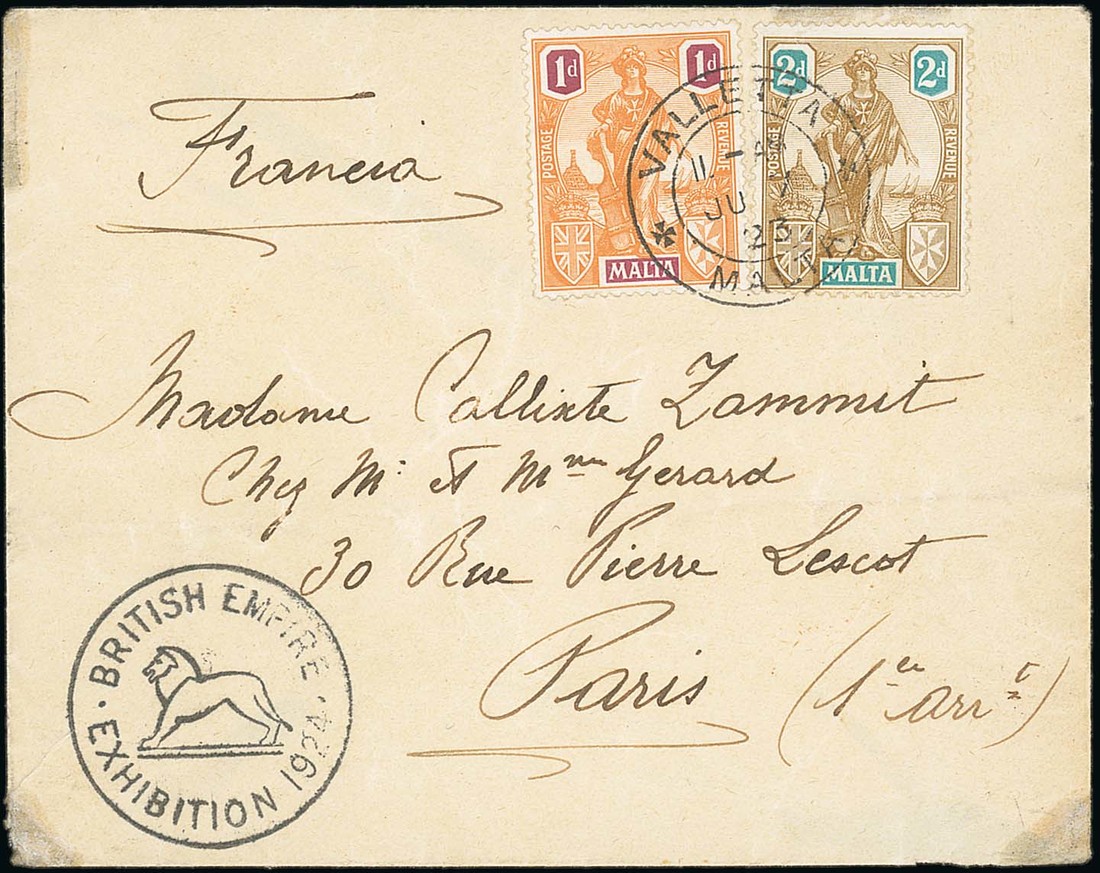 1d 1d
POSTAGE REVENUE
MALTA
2d 2d
POSTAGE REVENUE
MALTA
VALLETTA
11 - AM
JU
23
MALTA
Francia
Madame Callixte Zammit
Chez Mr et Mme Gerard
30 Rue Pierre Lescot
Paris (1er arrt)
BRITISH EMPIRE
EXHIBITION 1924